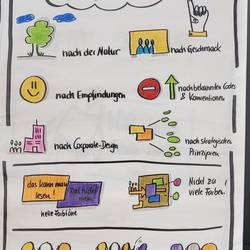 nach der Natur
nach Geschmack
nach Empfindungen
nach bekannten Codes
& Konventionen
nach Corporate-Design
nach strategischen
Prinzipien
das kann man
lesen.
Nicht zu
viele Farben.
helle Farbtöne